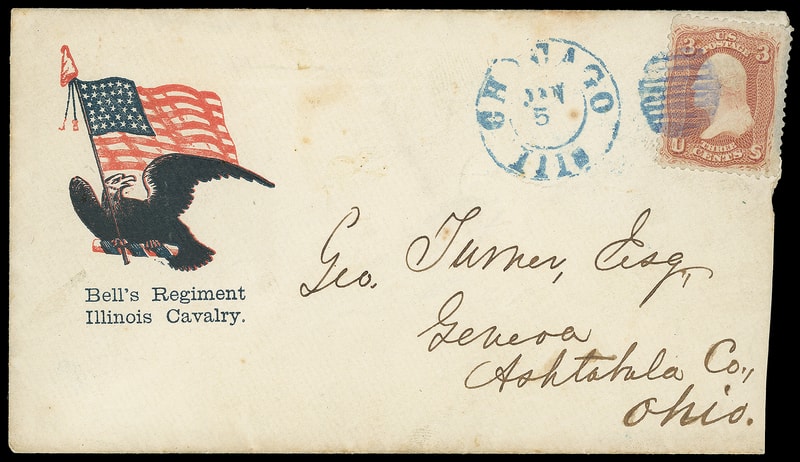 Bell's Regiment
Illinois Cavalry.
CHICAGO
JAN
5
Ill
3 US 3
POSTAGE
THREE
U CENTS S
Geo. Turner, Esq.,
Geneva
Ashtabula Co.,
Ohio.